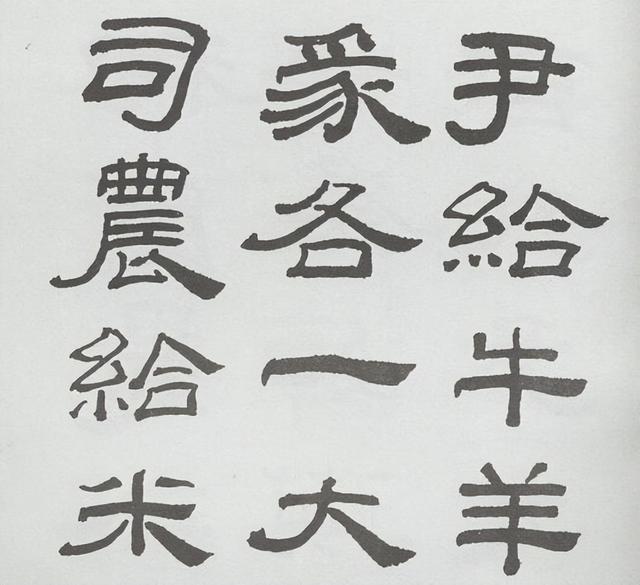 尹給牛羊
豕各一大
司農給米